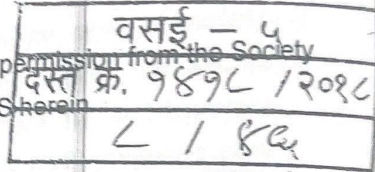 वसई - ५
permission from the Society
दस्त क्र. १४१८ / २०१८
herein
८ /